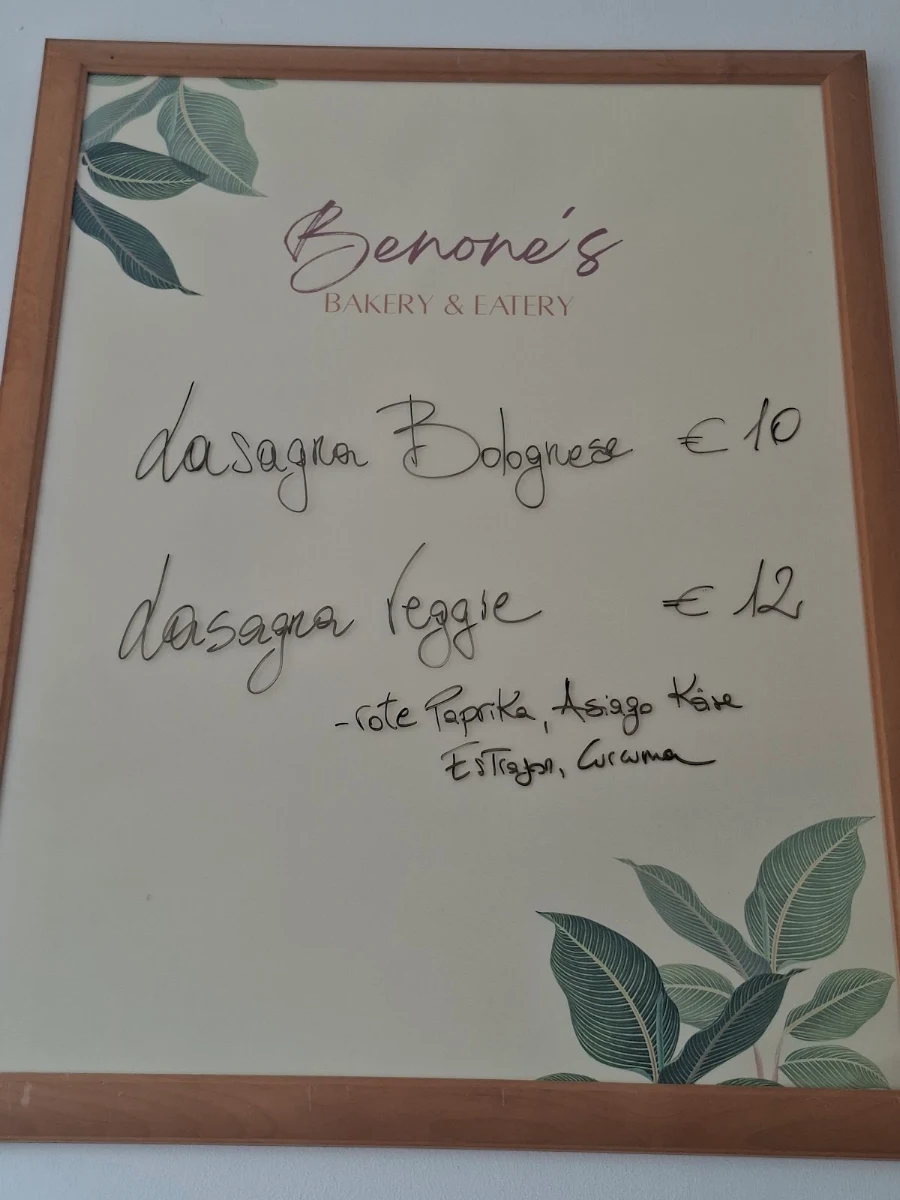 Benoné's
BAKERY & EATERY
Lasagna Bolognese € 10
Lasagna Veggie € 12
-rote Paprika, Asiago Käse
Estragon, Curcuma